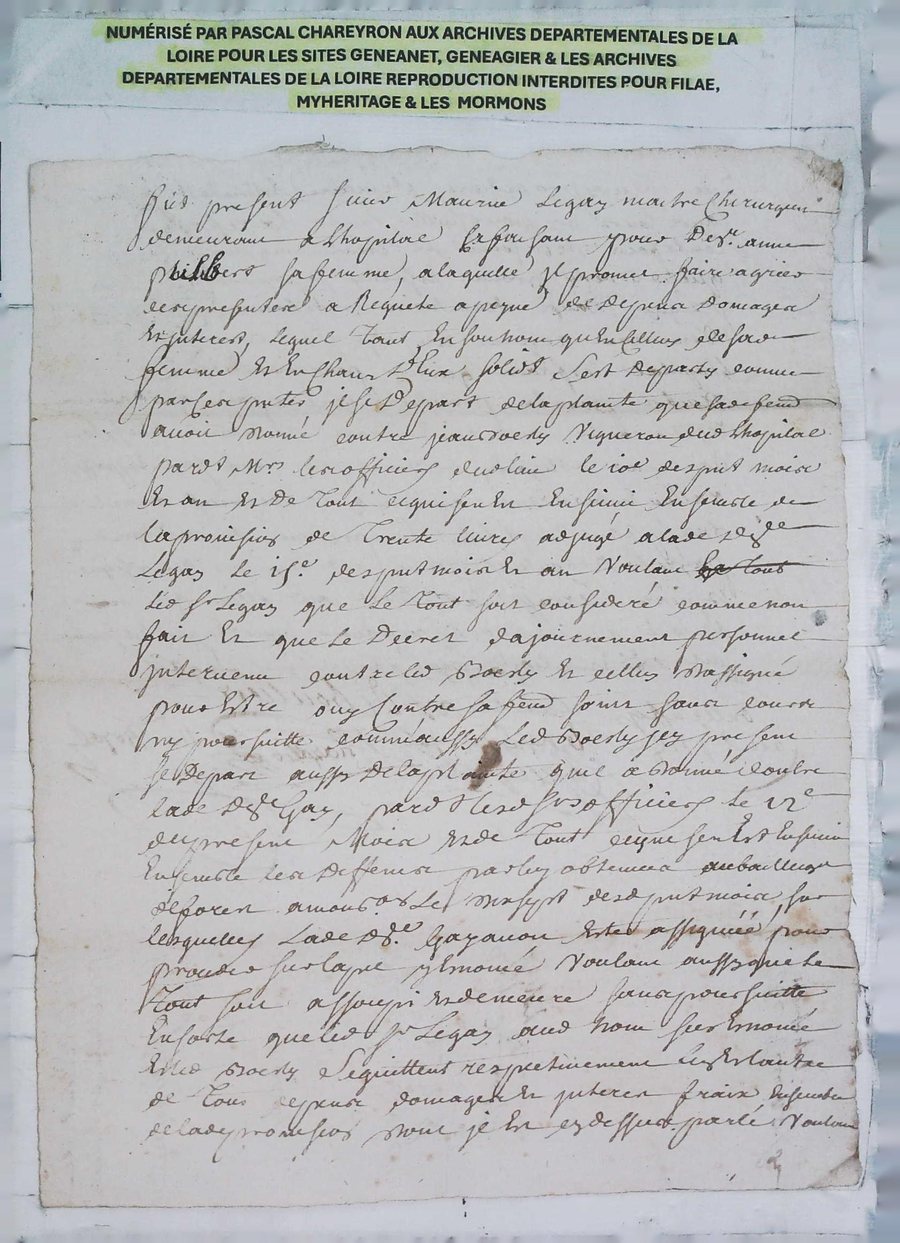 NUMÉRISÉ PAR PASCAL CHAREYRON AUX ARCHIVES DEPARTEMENTALES DE LA
LOIRE POUR LES SITES GENEANET, GENEAGIER & LES ARCHIVES
DEPARTEMENTALES DE LA LOIRE REPRODUCTION INTERDITES POUR FILAE,
MYHERITAGE & LES MORMONS
fut present sieur Maurice Legay maitre Chirurgien
demeurant a Lhopital faisant pour De.lle anne
sa femme, a laquelle je promet faire agreer
ces presentes a Requete a peyne de depens Domages
Et Interest, Lequel Tant En son nom qu'En Celluy de sad
femme Et En Chacun D'Eux solid. s'est Departy comme
par Ces p.ntes je se Depart de la plainte que sad. feme
avoit Donné contre jean Vigneron dud Lhopital
pard.t Mrs les officiers dud lieu le 10e des p.nt mois
Et an Et De Tout ce qui s'en Est Ensuivi Ensemble de
la provision de Trente livres adjugé a lade de.lle
Legay le 15e des p.nt mois Et an Voulant
led Sr Legay que Le Tout soit consideré comme non
fait Et que Le Decret dajournement personnel
intervenu contre led Et celluy assigné
pour Estre ouy Contre sa fem. soint sans cours
ny poursuitte comme aussy Led icy present
se Depart aussy De la plainte quil a Donné Contre
lade De.lle Gay, pard.t Lesd Srs officiers le 12e
du present Mois Et de Tout ce qui s'en Est Ensuivi
Ensemble les Deffences par luy obtenues au bailliage
de forez a Le des d. p.nt mois sur
lesquelles Lade De.lle Gay avoit Esté assignée pour
proceder sur lapel y Enoncé Voulant aussy que le
Tout soit assoupi Et demeure sans poursuitte
En sorte que led Sr Legay aud Nom sus Enoncé
Et led se quittent respectivement L'un Et Lautre
de Tous depens domages Et interest fraix Ensemble
de lade provision dont je Est cy dessus parlé Voulant